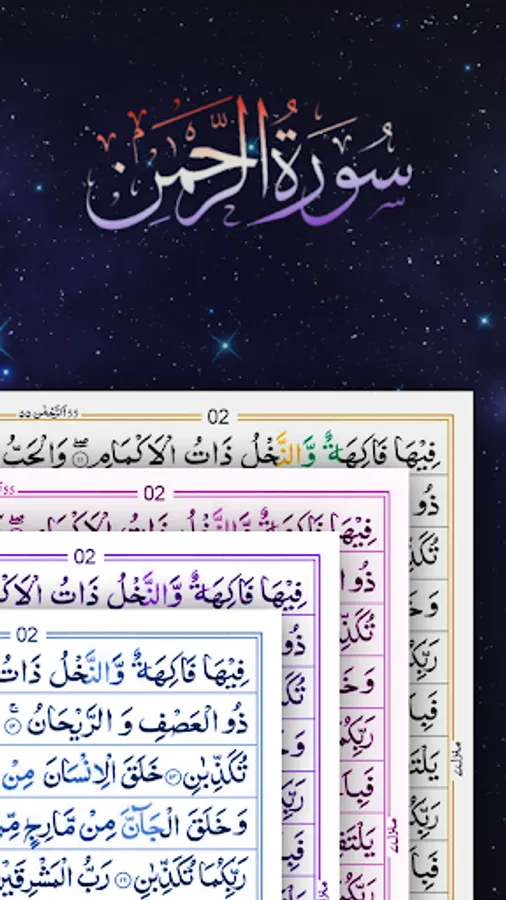 سُورَةُ الرَّحْمٰن
الرَّحْمٰن ٥٥
02
فِيْهَا فَاكِهَةٌ وَّالنَّخْلُ ذَاتُ الْاَكْمَامِ ۖ﴿۱۱﴾ وَالْحَبُّ
ذُو
تُكَذِّ
وَخَ
رَبِّكُ
فَبِاَ
يَلْتَ
رَبِّكُ
فَبِاَ
02
فِيْهَا فَاكِهَةٌ وَّالنَّخْلُ ذَاتُ الْاَكْمَامِ
ذُو ا
تُكَذِّ
وَخَ
رَبِّكُمَ
فَبِاَ
يَلْتَقِ
رَبِّكُ
02
فِيْهَا فَاكِهَةٌ وَّالنَّخْلُ ذَاتُ الْاَكْ
ذُو
تُكَ
وَخَ
رَبِّكُ
فَبِاَ
02
فِيْهَا فَاكِهَةٌ وَّالنَّخْلُ ذَاتُ
ذُو الْعَصْفِ وَ الرَّيْحَانُ ۚ﴿۱۲﴾
تُكَذِّبٰنِ﴿۱۳﴾ خَلَقَ الْاِنْسَانَ مِنْ
وَ خَلَقَ الْجَآنَّ مِنْ مَّارِجٍ مِّنْ
رَبِّكُمَا تُكَذِّبٰنِ﴿۱۶﴾ رَبُّ الْمَشْرِقَيْنِ